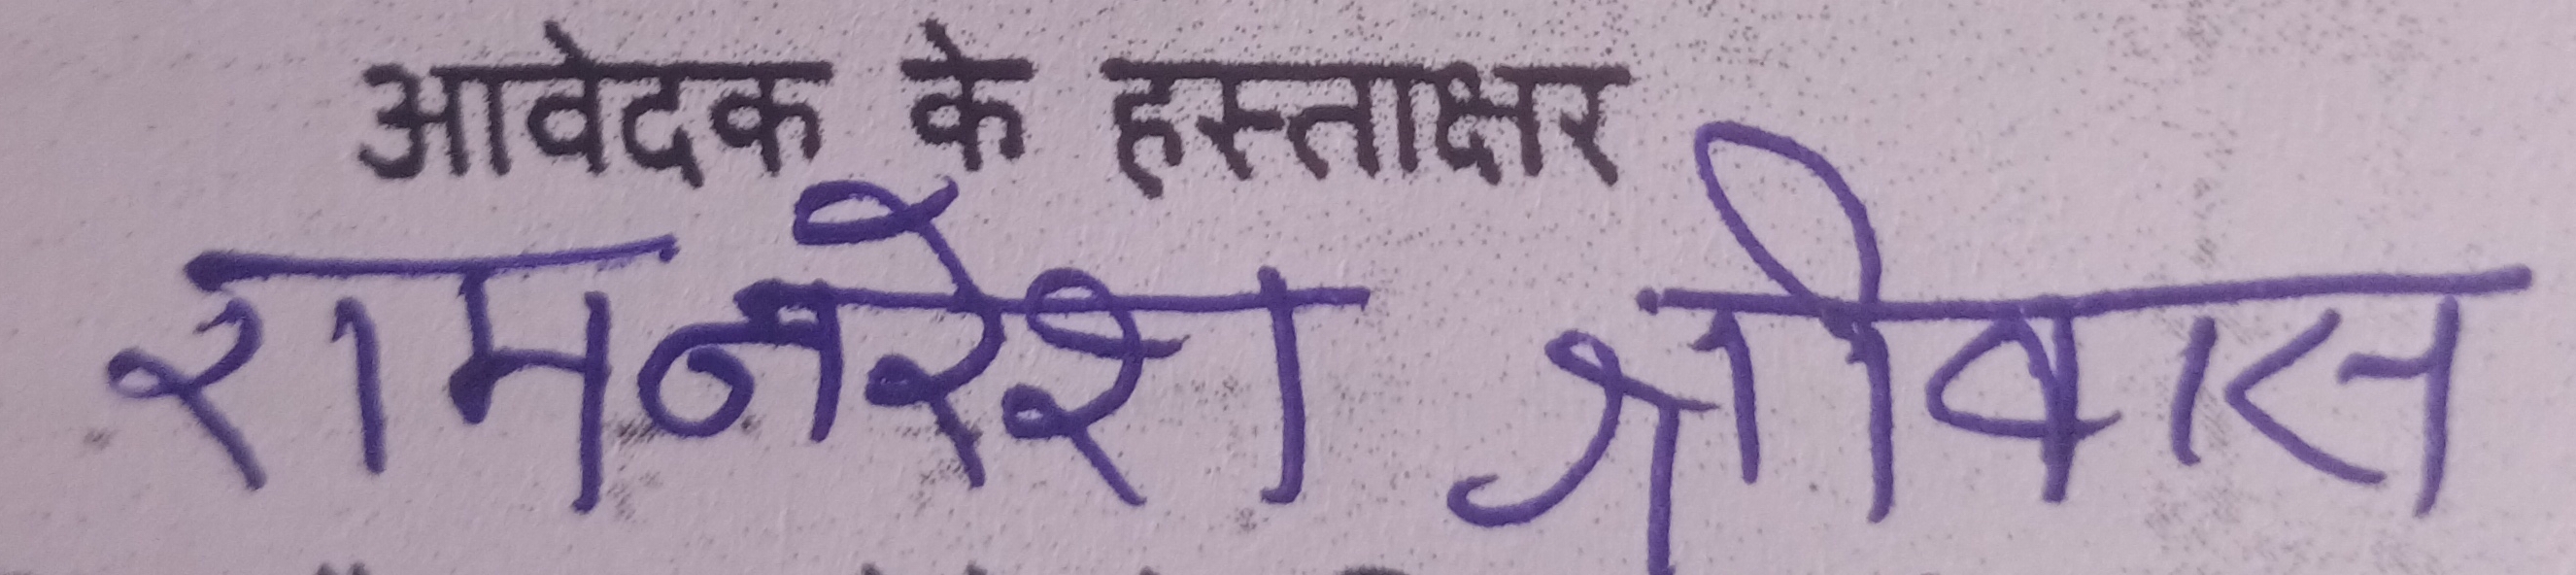 आवेदक के हस्ताक्षर
रामनरेश श्रीवास